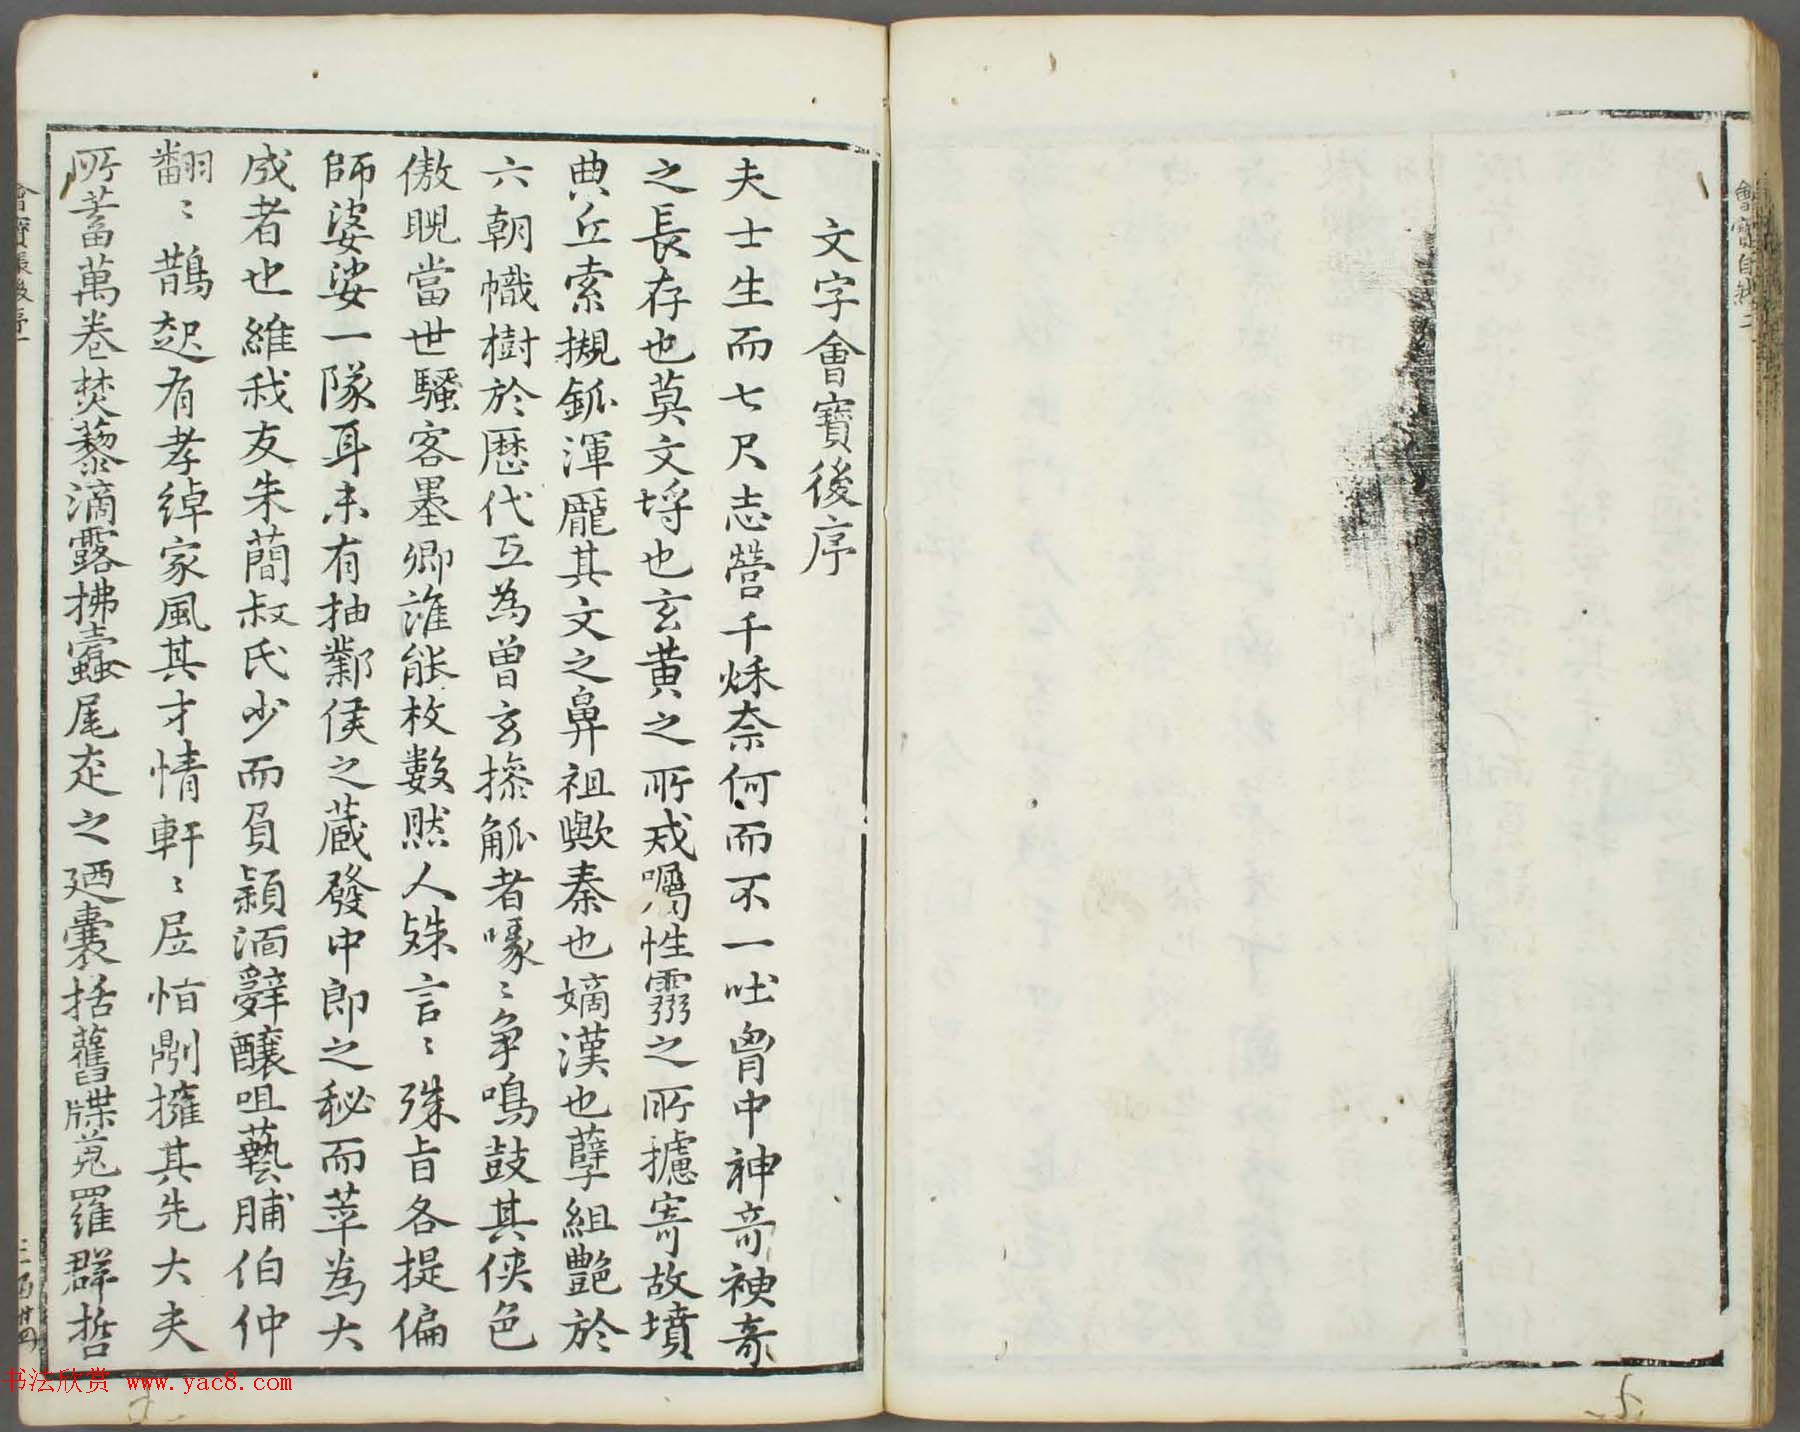 會寶自敘二
文字會寶後序
夫士生而七尺志營千烁奈何而不一吐胷中神奇神奇
之長存也莫文埒也玄黄之所戒囑性靈之所攄寄故墳
典丘索摫鈲渾厖其文之鼻祖歟秦也嫡漢也孽組艷於
六朝幟樹於歷代互為曾玄摻觚者喙〻争鳴鼓其侠色
傲睨當世騷客墨卿誰能枚數然人殊言〻殊旨各提偏
師娑娑一隊耳未有抽鄴侯之蔵發中郎之秘而萃為大
成者也維我友朱蕑叔氏少而負穎湎辭醸咀藝脯伯仲
翩〻鵲起有孝綽家風其才情軒〻居恒剛擁其先大夫
所蓄萬卷焚藜滴露拂蠹尾疋之廼囊括舊牒蒐羅群哲
书法欣赏 www.yac8.com